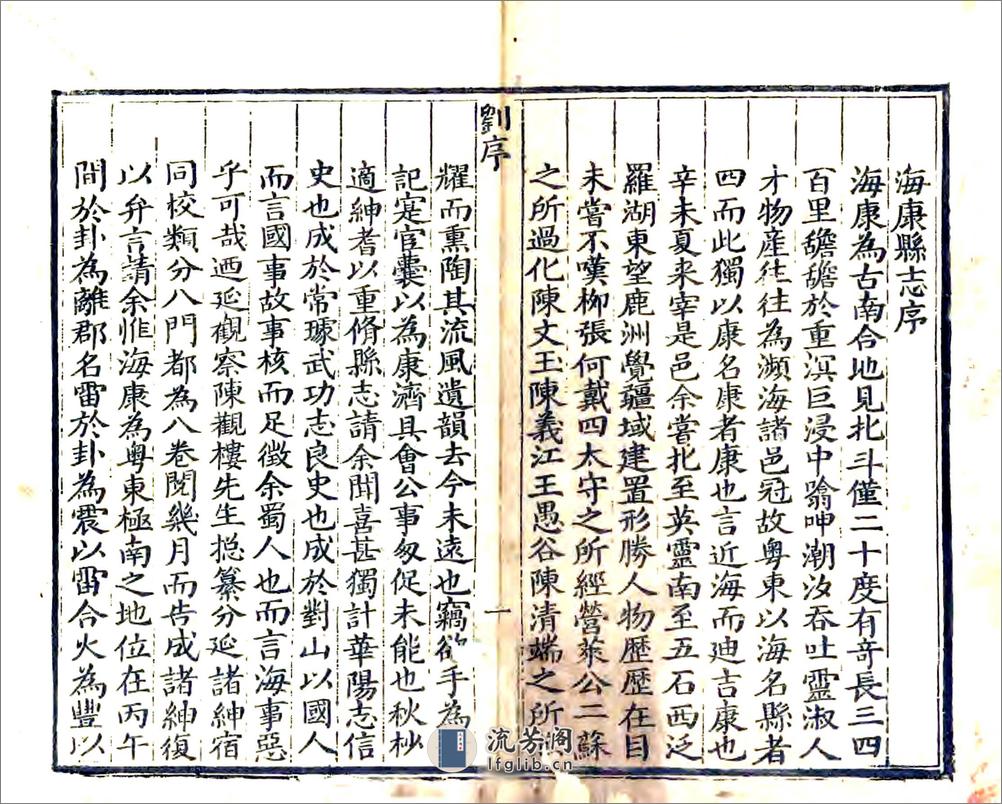 海康縣志序
海康為古南合地見北斗僅二十度有竒長三四
百里礄礄於重溟巨浸中翕呷潮汐吞吐靈淑人
才物產往往為瀕海諸邑冠故粵東以海名縣者
四而此獨以康名康者康也言近海而迪吉康也
辛未夏来宰是邑余嘗北至英靈南至五石西泛
羅湖東望鹿洲覺疆域建置形勝人物歴歴在目
未嘗不嘆栁張何戴四太守之所經營萊公二蘇
之所過化陳文玉陳義江王愚谷陳清端之所
劉序
一
耀而熏陶其流風遺韻去今未遠也竊欲手為
記寔官囊以為康濟具會公事匆促未能也秋杪
適紳耆以重脩縣志請余聞喜甚獨計華陽志信
史也成於常璩武功志良史也成於對山以國人
而言國事故事核而足徵余蜀人也而言海事惡
乎可哉迺延觀察陳觀樓先生摠纂分延諸紳宿
同校類分八門都為八卷閱幾月而告成諸紳復
以弁言請余惟海康為粵東極南之地位在丙午
間於卦為離郡名雷於卦為震以雷合火為豐以
流芳阁
lfglib.cn